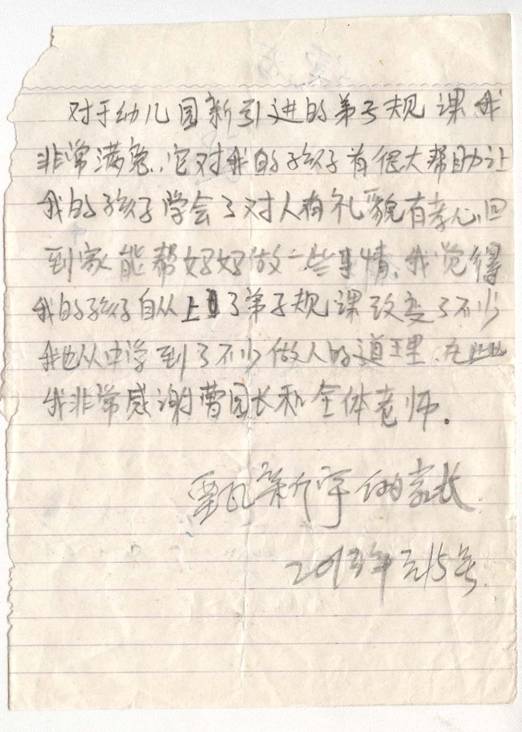 对于幼儿园新引进的弟子规课我
非常满意,它对我的孩子有很大帮助让
我的孩子学会了对人有礼貌有孝心回
到家能帮妈妈做一些事情,我觉得
我的孩子自从上了弟子规课改变了不少
我也从中学到了不少做人的道理,在此
我非常感谢曹园长和全体老师。
甄新宇的家长